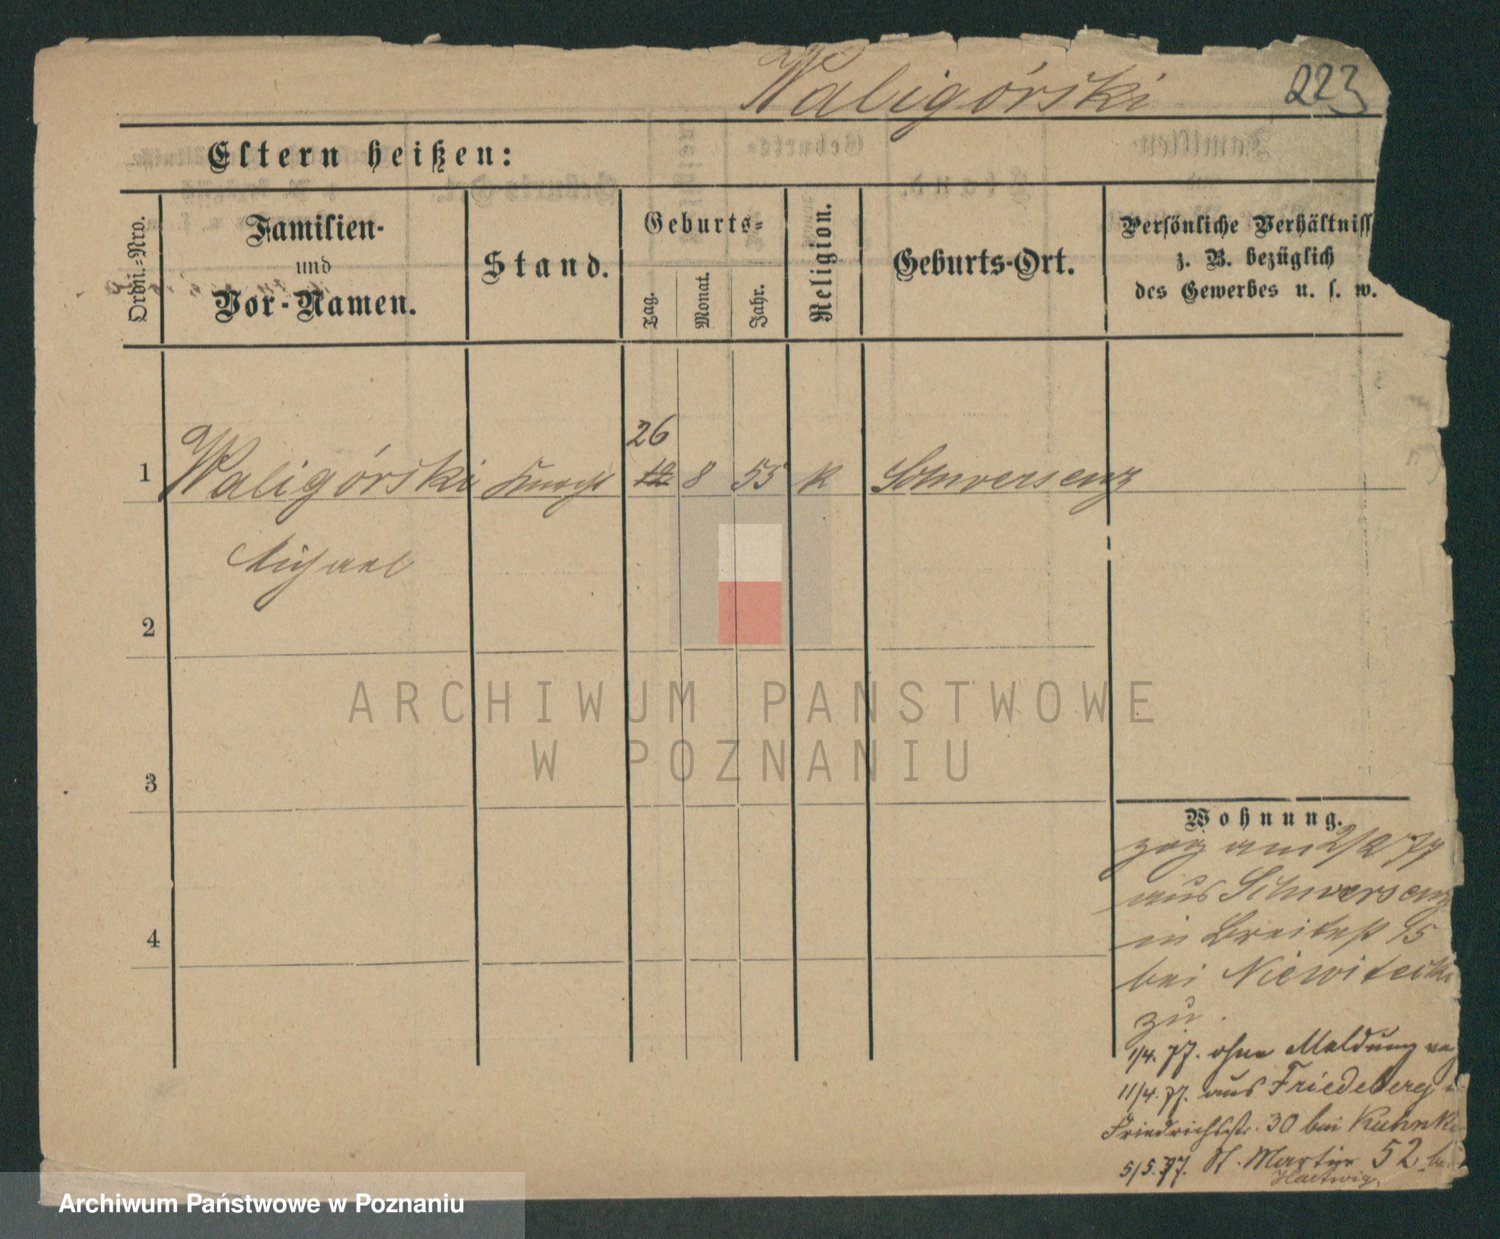 Waligórski 223
Eltern heißen:
Ordn.-Nro.
Familien-
und
Vor-Namen.
Stand.
Geburts-
Tag.
Monat.
Jahr.
Religion.
Geburts-Ort.
Persönliche Verhältniss
z. B. bezüglich
des Gewerbes u. s. w.
26
1 Waligórski Knecht 12 8 55 K Schwersenz
Michael
2
3
4
Wohnung.
zog am 2/2 77
aus Schwersenz
in Breitest 15
bei
zu.
1/4. 77. ohne Meldung
11/4. 77. aus Friedeberg
Friedrichsstr. 30 bei Kuhnke
5/5. 77. St. Martin 52 bei
Hartwig.
ARCHIWUM PANSTWOWE
W POZNANIU
Archiwum Państwowe w Poznaniu